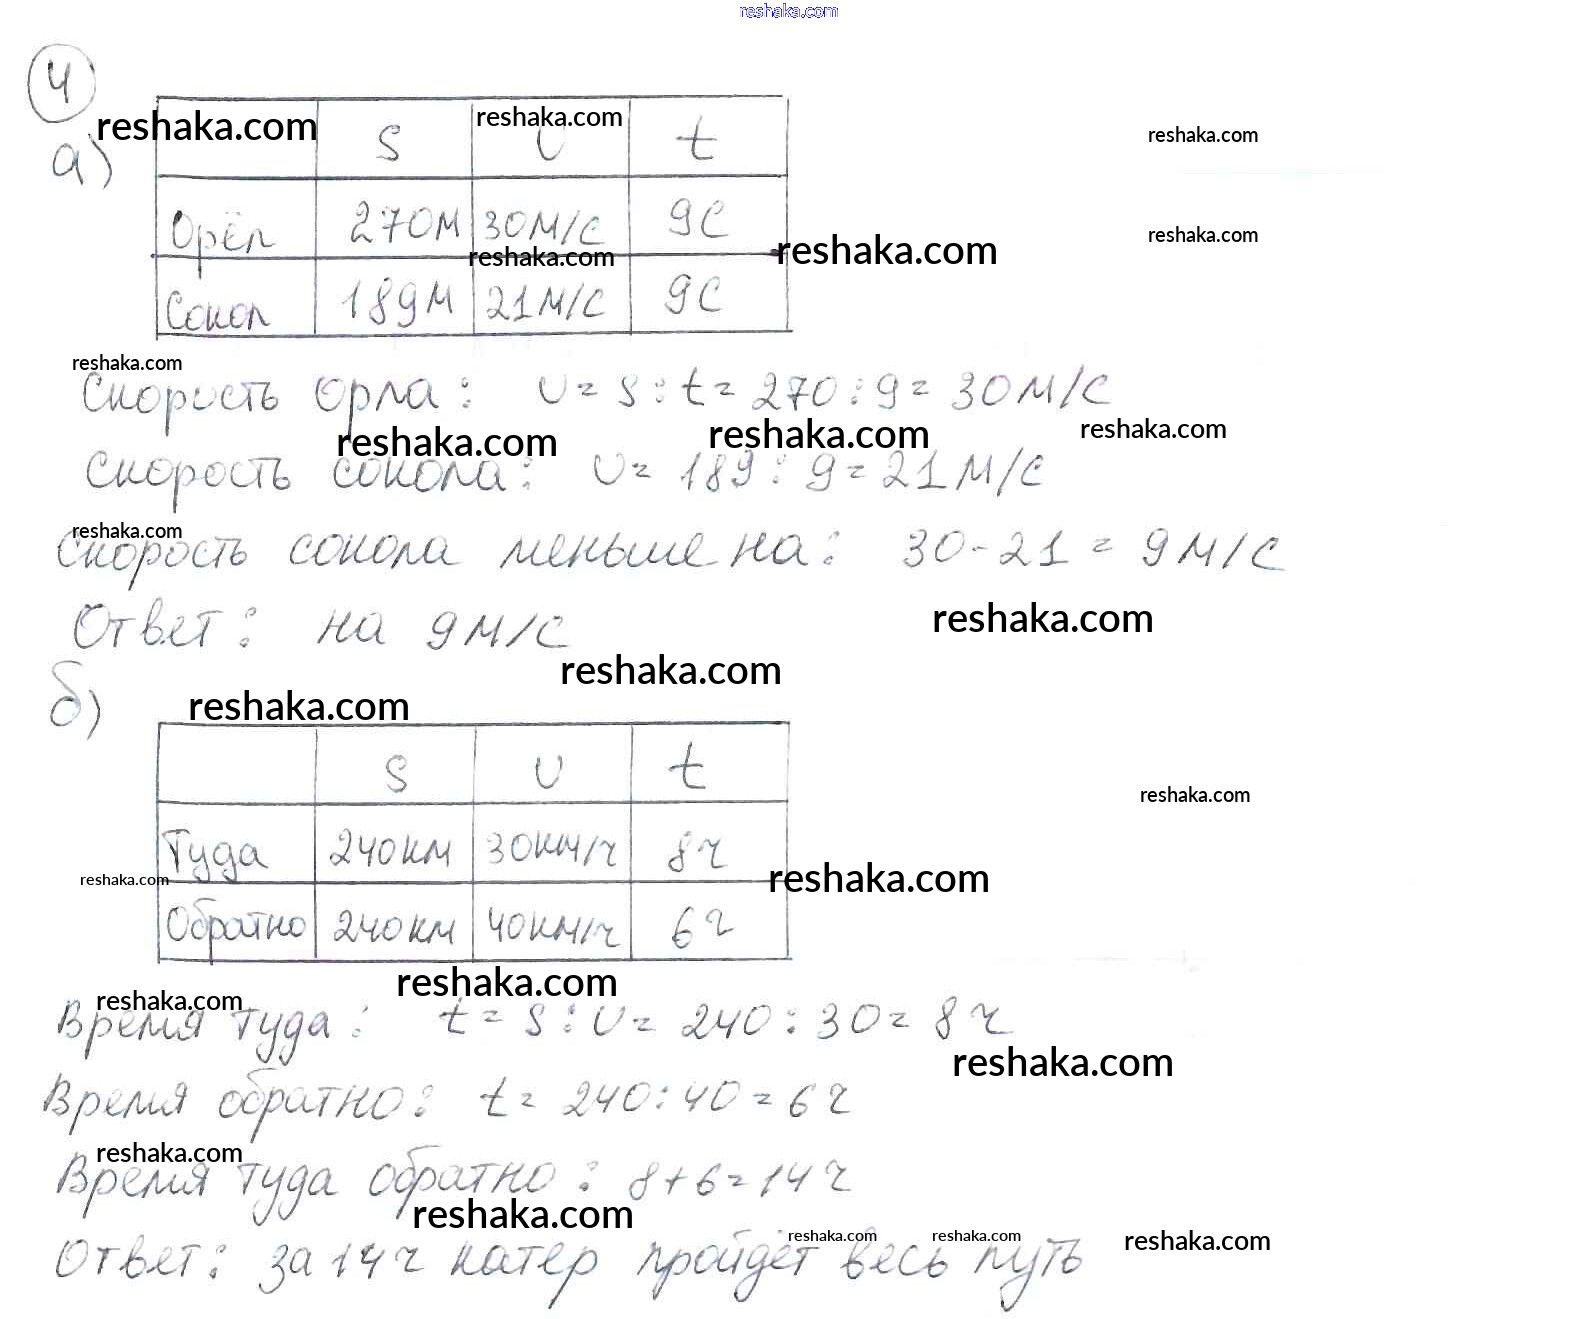 reshaka.com
4
а)
reshaka.com
S
reshaka.com
υ
t
reshaka.com
Орёл 270м 30м/с 9с
reshaka.com
reshaka.com
reshaka.com
Сокол 189м 21м/с 9с
reshaka.com
Скорость орла: υ = S : t = 270 : 9 = 30м/с
reshaka.com reshaka.com reshaka.com
Скорость сокола: υ = 189 : 9 = 21м/с
reshaka.com
Скорость сокола меньше на: 30 - 21 = 9м/с
Ответ: на 9м/с
reshaka.com
reshaka.com
б)
reshaka.com
S υ t
reshaka.com
Туда 240км 30км/ч 8ч
reshaka.com reshaka.com
Обратно 240км 40км/ч 6ч
reshaka.com
reshaka.com
Время туда: t = S : υ = 240 : 30 = 8ч
reshaka.com
Время обратно: t = 240 : 40 = 6ч
reshaka.com
Время туда обратно: 8 + 6 = 14ч
reshaka.com
reshaka.com reshaka.com reshaka.com
Ответ: за 14ч катер пройдёт весь путь